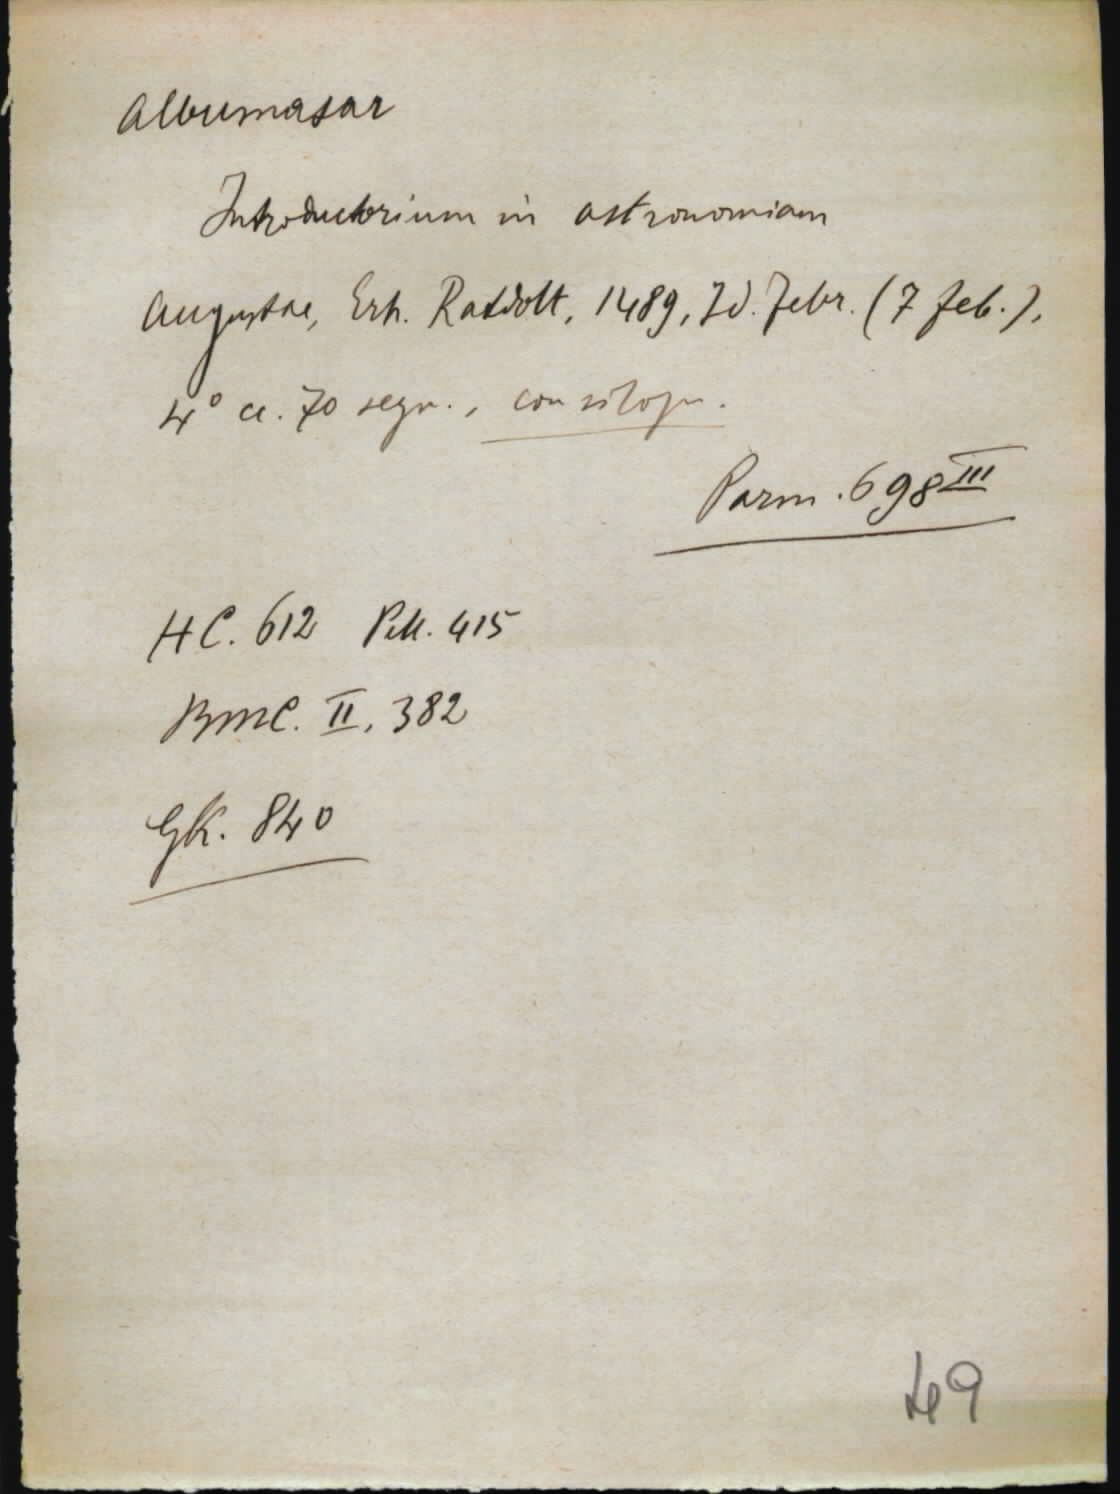 Albumasar
Introductorium in astronomiam
Augustae, Erh. Ratdolt, 1489, Id. Febr. (7 feb.),
4° cc. 70 segn., con silogr.
Parm. 698 III
HC. 612 Pell. 415
BMC. II, 382
GK. 840
49